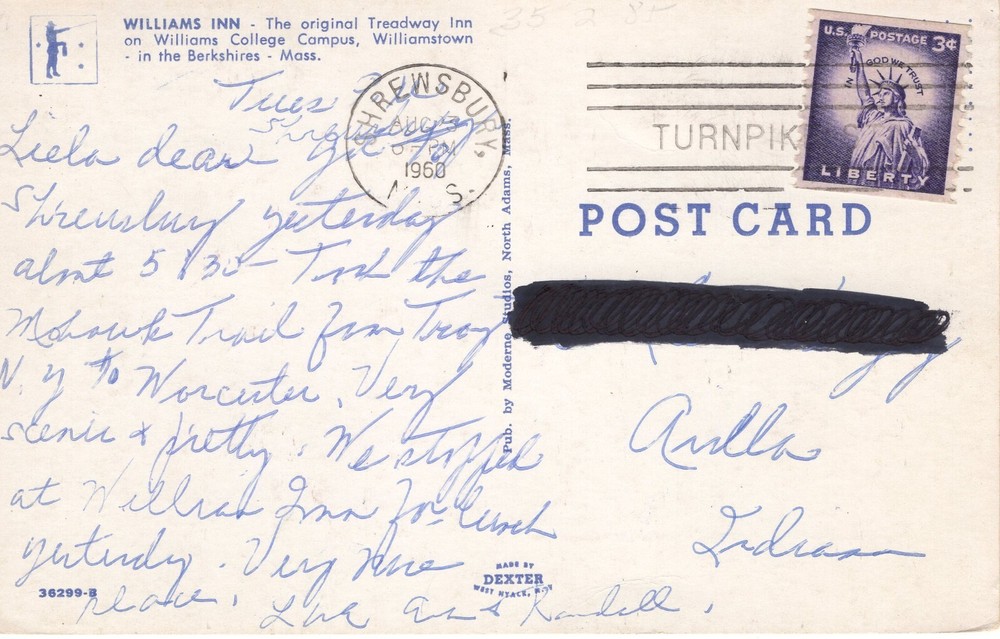 WILLIAMS INN - The original Treadway Inn
on Williams College Campus, Williamstown
- in the Berkshires - Mass.
35 2 85
Tues
Liela dear Got to
Shrewsbury yesterday
about 5:30 - Took the
Mohawk Trail from Troy
N. Y. to Worcester. Very
scenic & pretty. We stopped
at William Inn for lunch
yesterday. Very nice
place.
Love Ann & Randall.
36299-B
SHREWSBURY,
AUG
1960
TURNPIK
U.S. POSTAGE 3¢
IN GOD WE TRUST
LIBERTY
POST CARD
Pub. by Moderne Studios, North Adams, Mass.
Avilla
Indiana
MADE BY
DEXTER
WEST NYACK, N.Y.